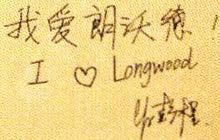 我爱朗沃德！
I ♡ Longwood